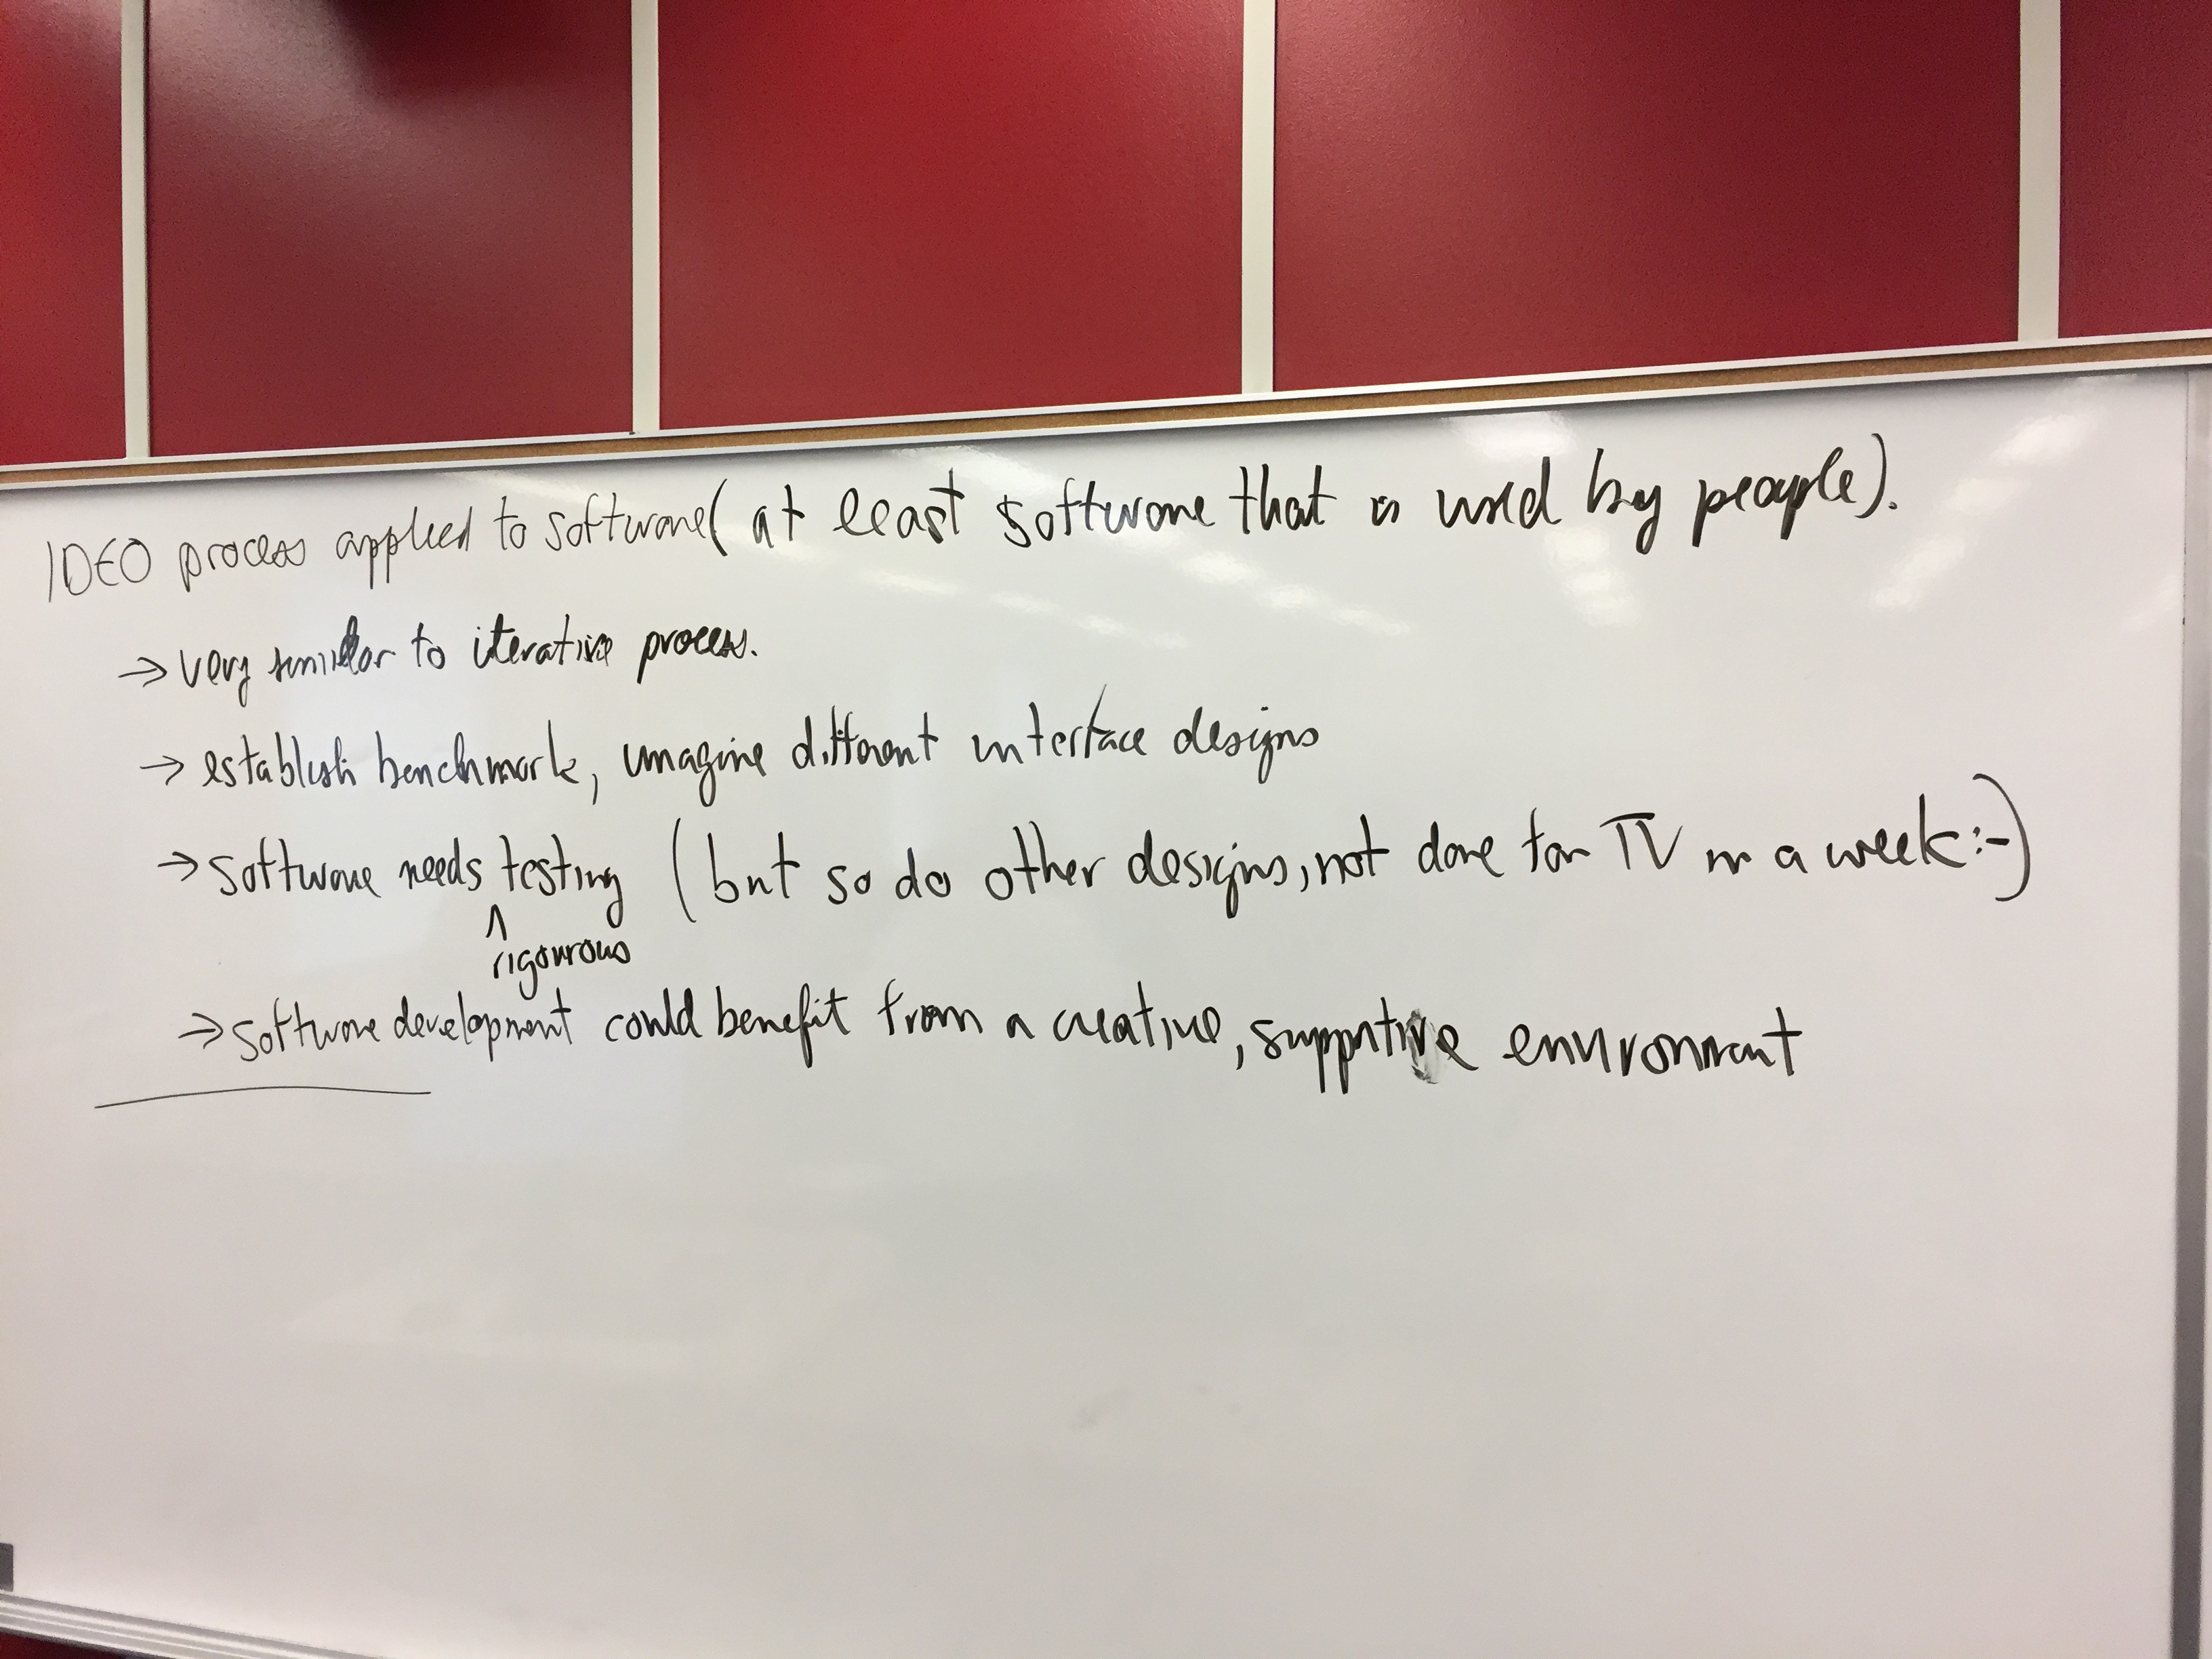 IDEO process applied to software (at least software that is used by people).
→ very similar to iterative process.
→ establish benchmark, imagine different interface designs
→ software needs testing (but so do other designs, not done for TV in a week :-)
^
rigourous
→ software development could benefit from a creative, supportive environment